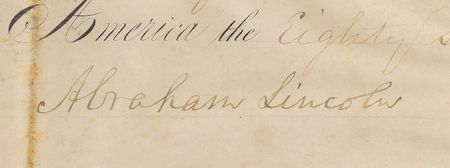 America the Eighty
Abraham Lincoln